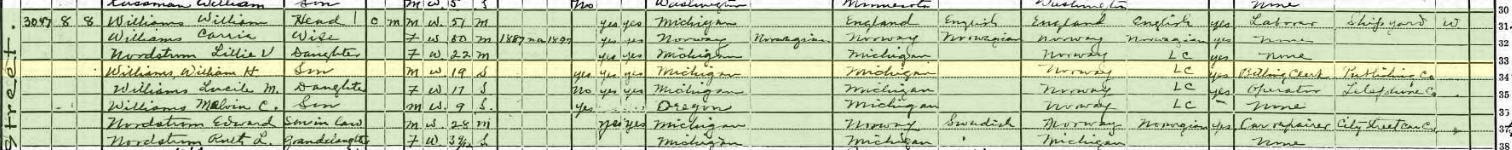 Kussman William Son M W 15 S No Washington Minnesota Washington None 30
3047 8 8 Williams William Head 1 C m M W 51 M yes yes Michigan England English England English yes Laborer Ship yard W 31
Williams Carrie Wife F W 50 M 1887 na 1897 yes yes Norway Norwegian Norway Norwegian Norway Norwegian yes None 32
Nordstrom Lillie V Daughter F W 22 M yes yes Michigan Michigan Norway LC yes None 33
Williams, William H Son M W 19 S yes yes yes Michigan Michigan Norway LC yes Billing Clerk Publishing Co. 34
Williams Lucile M. Daughter F W 17 S No yes yes Michigan Michigan Norway LC yes Operator Telephone Co. 35
Williams Melvin C. Son M W 9 S. yes Oregon Michigan Norway LC – None
Nordstrom Edward Son in law M W. 28 M yes yes Michigan Norway Swedish Norway Norwegian yes Car repairer City Street Car C. 37
Nordstrom Ruth L. Granddaughter F W S Michigan Michigan Michigan None 38
Street.